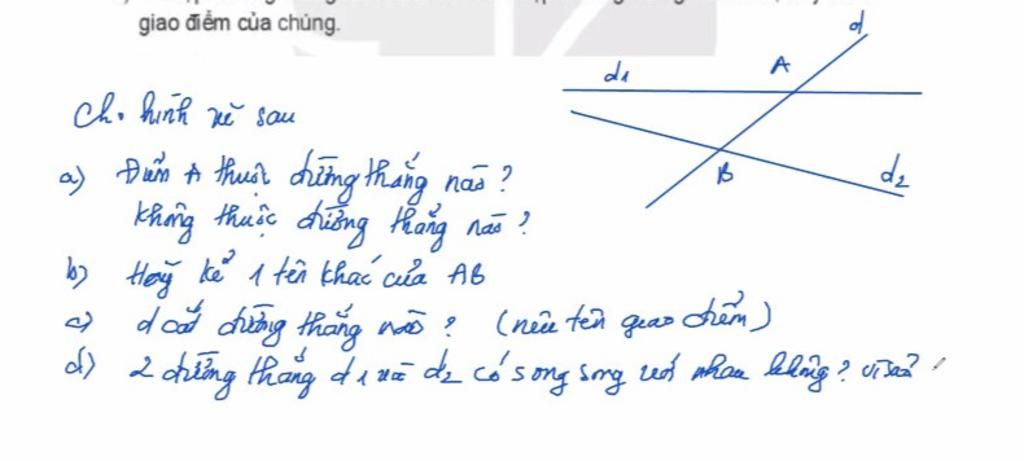 giao điểm của chúng.
d
d1
A
Cho hình vẽ sau
B
d2
a) Điểm A thuộc đường thẳng nào?
không thuộc đường thẳng nào?
b) Hãy kể 1 tên khác của AB
c) d cắt đường thẳng nào? (nêu tên giao điểm)
d) 2 đường thẳng d1 và d2 có song song với nhau không? vì sao?